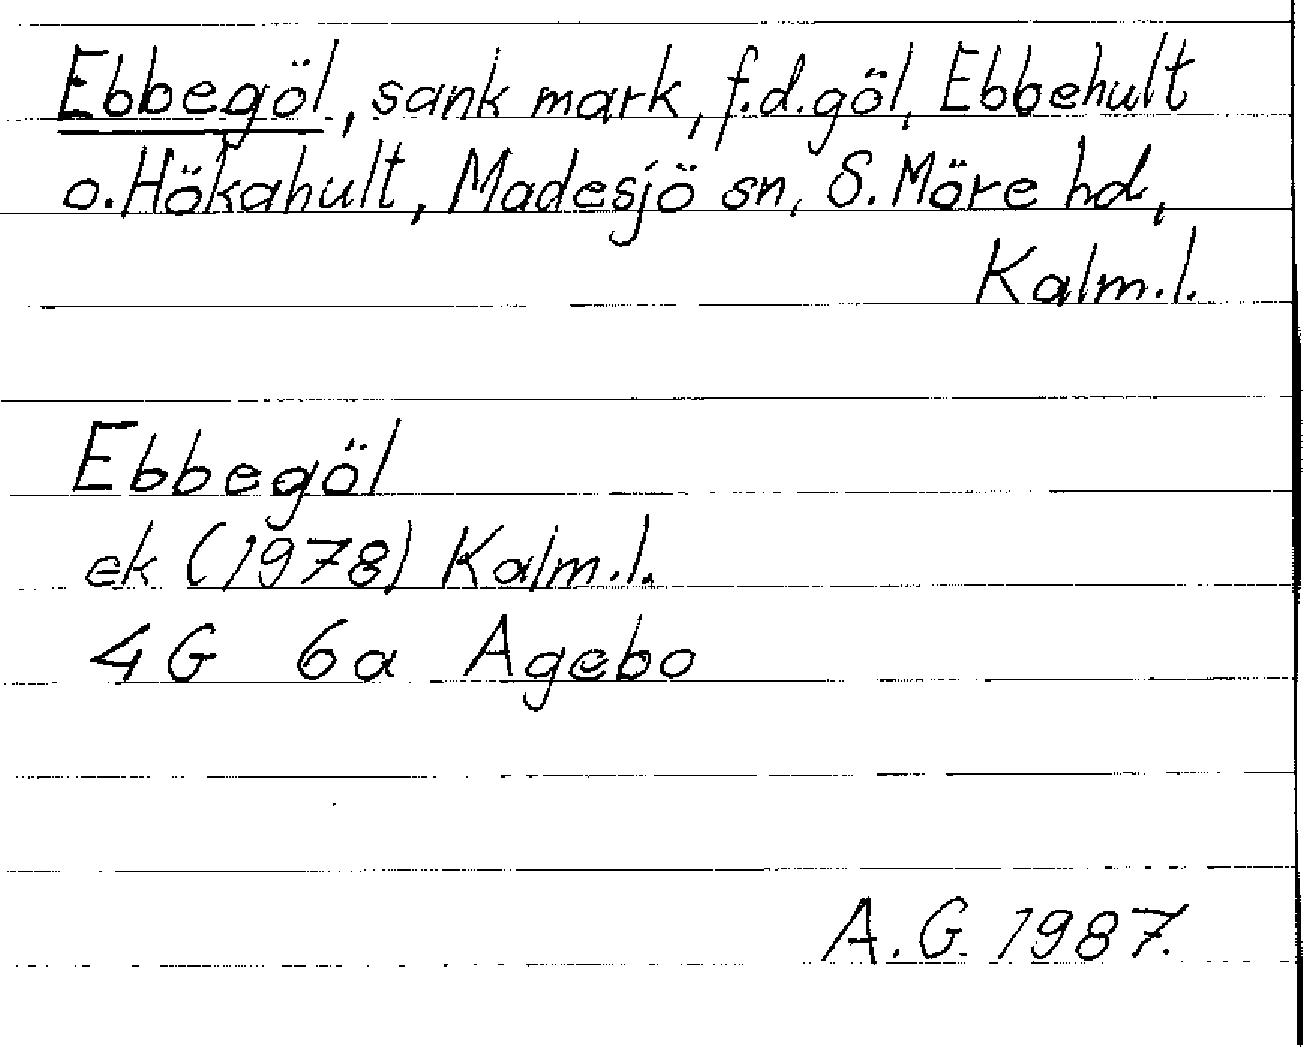 Ebbegöl, sank mark, f.d. göl, Ebbehult
o. Hökahult, Madesjö sn, S. Möre hd,
Kalm.l.
Ebbegöl
ek (1978) Kalm.l.
4G 6a Agebo
A.G. 1987.